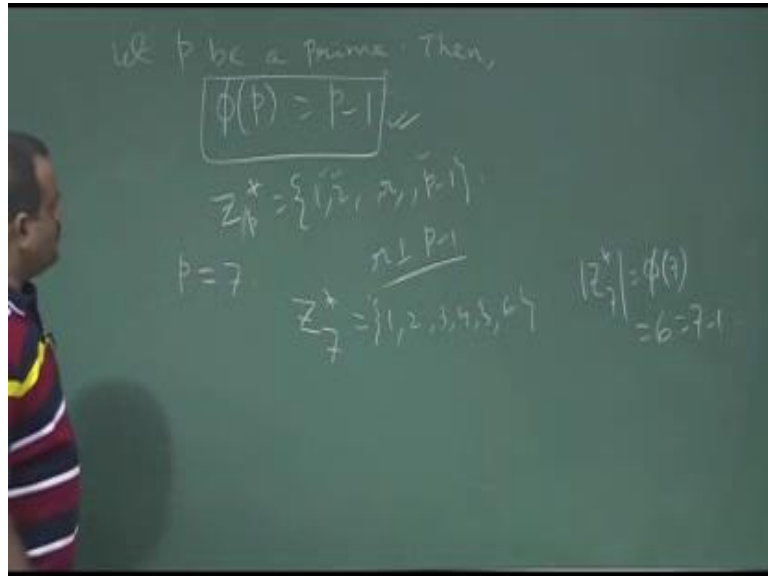 Let p be a prime. Then,
φ(p) = p-1
Z_p^* = {1, 2, r, , p-1}
r ⊥ p-1
p = 7
Z_7^* = {1, 2, 3, 4, 5, 6}
|Z_7^*| = φ(7)
= 6 = 7-1